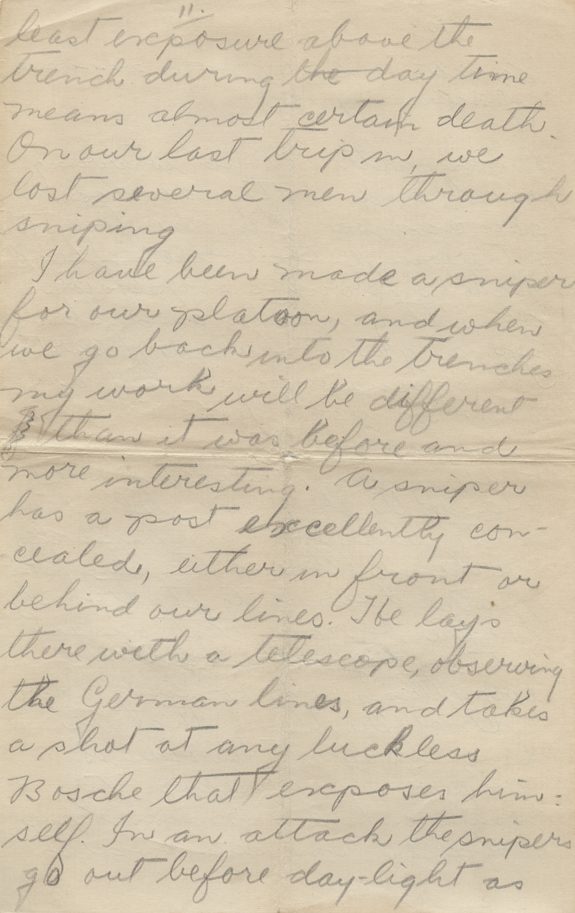 11.
least exposure above the
trench during the day time
means almost certain death.
On our last trip in, we
lost several men through
sniping
I have been made a sniper
for our platoon, and when
we go back into the trenches
my work will be different
than it was before and
more interesting. A sniper
has a post excellently con-
cealed, either in front or
behind our lines. He lays
there with a telescope, observing
the German lines, and takes
a shot at any luckless
Bosche that exposes him=
self. In an attack the snipers
go out before day-light as